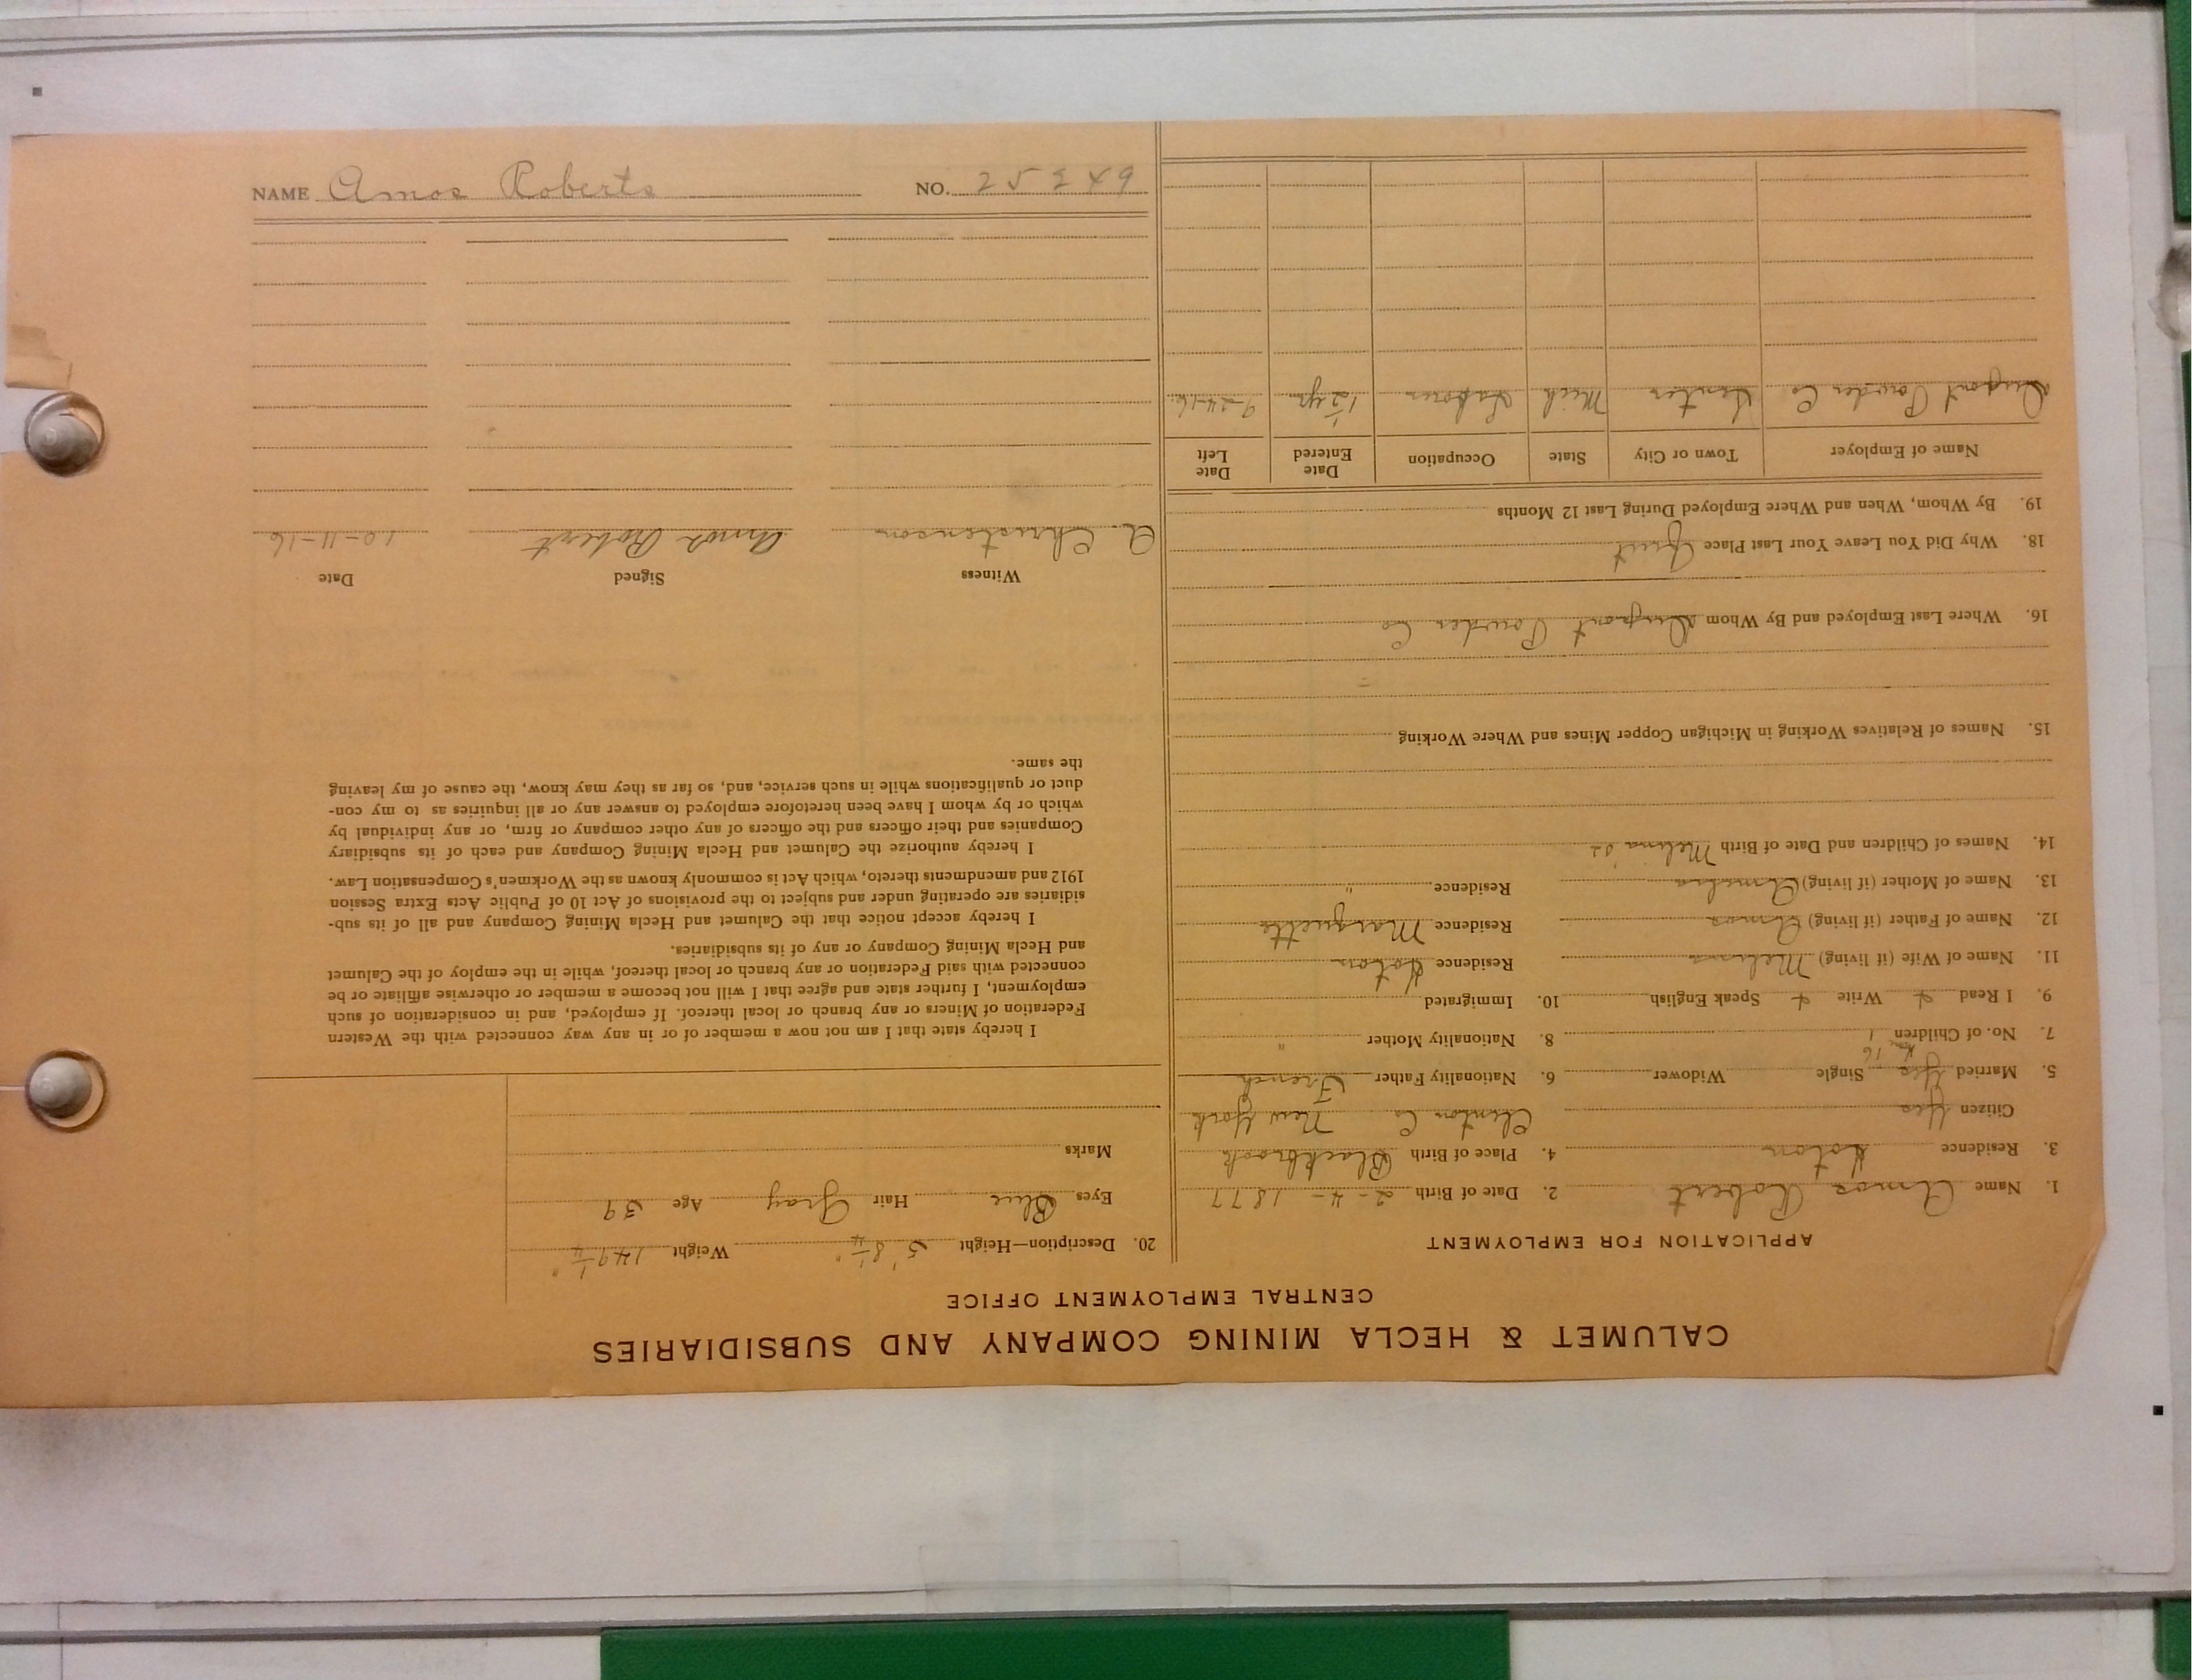 NAME Amos Roberts NO. 25249
CALUMET & HECLA MINING COMPANY AND SUBSIDIARIES
CENTRAL EMPLOYMENT OFFICE
APPLICATION FOR EMPLOYMENT
1. Name Amos Robert 2. Date of Birth 2-4-1877
3. Residence 4. Place of Birth Blackbrook
Citizen Yes Clinton Co. New York
5. Married Yes Single Widower 6. Nationality Father French
7. No. of Children 1 8. Nationality Mother "
9. I Read Write Speak English 10. Immigrated
11. Name of Wife (if living) Melina Residence
12. Name of Father (if living) Amos Residence Marquette
13. Name of Mother (if living) Amelia Residence "
14. Names of Children and Date of Birth Melina
15. Names of Relatives Working in Michigan Copper Mines and Where Working
16. Where Last Employed and By Whom Dupont Powder Co
18. Why Did You Leave Your Last Place Quit
19. By Whom, When and Where Employed During Last 12 Months
Name of Employer Town or City State Occupation Date Entered Date Left
Dupont Powder Co Mich Laborer 1½ yr. 9-24-16.
20. Description—Height 5' 8¼" Weight 149¼"
Eyes Blue Hair Gray Age 39
Marks
I hereby state that I am not now a member of or in any way connected with the Western
Federation of Miners or any branch or local thereof. If employed, and in consideration of such
employment, I further state and agree that I will not become a member or otherwise affiliate or be
connected with said Federation or any branch or local thereof, while in the employ of the Calumet
and Hecla Mining Company or any of its subsidiaries.
I hereby accept notice that the Calumet and Hecla Mining Company and all of its sub-
sidiaries are operating under and subject to the provisions of Act 10 of Public Acts Extra Session
1912 and amendments thereto, which Act is commonly known as the Workmen's Compensation Law.
I hereby authorize the Calumet and Hecla Mining Company and each of its subsidiary
Companies and their officers and the officers of any other company or firm, or any individual by
which or by whom I have been heretofore employed to answer any or all inquiries as to my con-
duct or qualifications while in such service, and, so far as they may know, the cause of my leaving
the same.
Witness Signed Date
A. Christenson Amos Robert 10-11-16